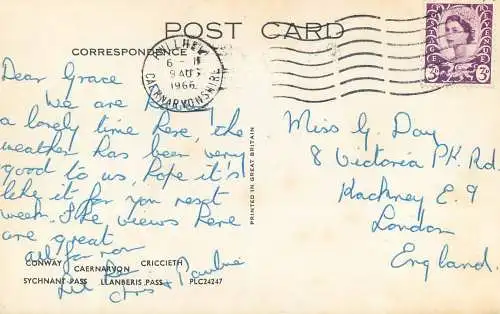 POST CARD
CORRESPONDENCE
PWLLHELI
6 - PM
9 AUG
1966
CAERNARVONSHIRE
3D
Dear Grace
We are
a lonely time here, the
weather has been very
good to us, hope it's
like it for you next
week. The views here
are great
all for now
Chris + Pauline
Miss G. Day
8 Victoria PK. Rd.
Hackney E. 9
London
England.
PRINTED IN GREAT BRITAIN
CONWAY CRICCIETH
CAERNARVON
SYCHNANT PASS LLANBERIS PASS PLC24247